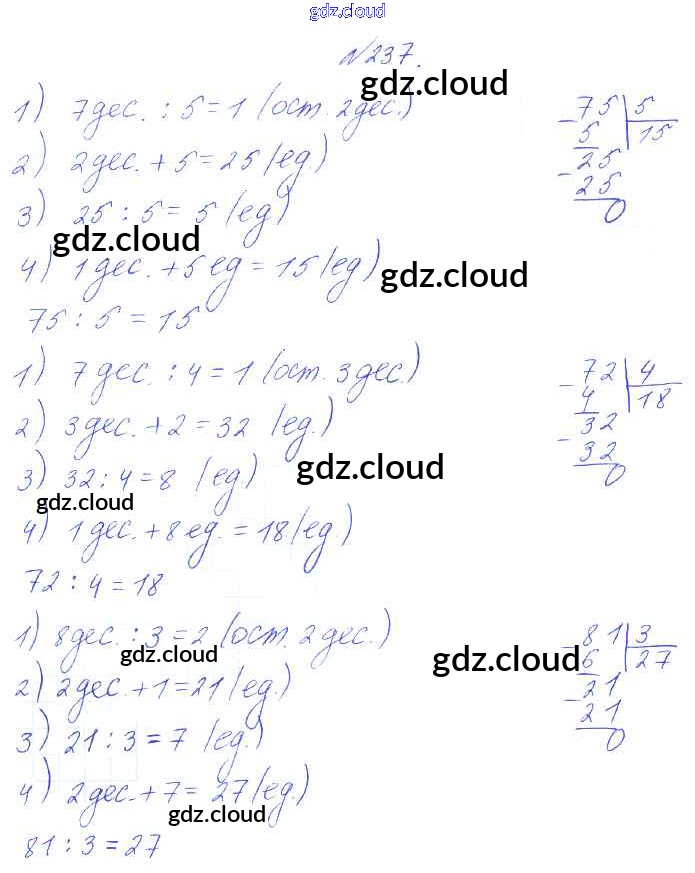 gdz.cloud
N237.
gdz.cloud
1) 7дес. : 5 = 1 (ост. 2дес.)
2) 2дес. + 5 = 25 (ед.)
3) 25 : 5 = 5 (ед)
gdz.cloud
4) 1дес. + 5 ед = 15 (ед)
gdz.cloud
75 : 5 = 15
75 5
5 15
25
25
0
1) 7дес. : 4 = 1 (ост. 3дес.)
2) 3дес. + 2 = 32 (ед.)
3) 32 : 4 = 8 (ед)
gdz.cloud
gdz.cloud
4) 1дес. + 8ед. = 18 (ед)
72 : 4 = 18
72 4
4 18
32
32
0
1) 8дес. : 3 = 2 (ост. 2дес.)
gdz.cloud
gdz.cloud
2) 2дес. + 1 = 21 (ед.)
3) 21 : 3 = 7 (ед.)
4) 2дес. + 7 = 27 (ед.)
gdz.cloud
81 : 3 = 27
81 3
6 27
21
21
0